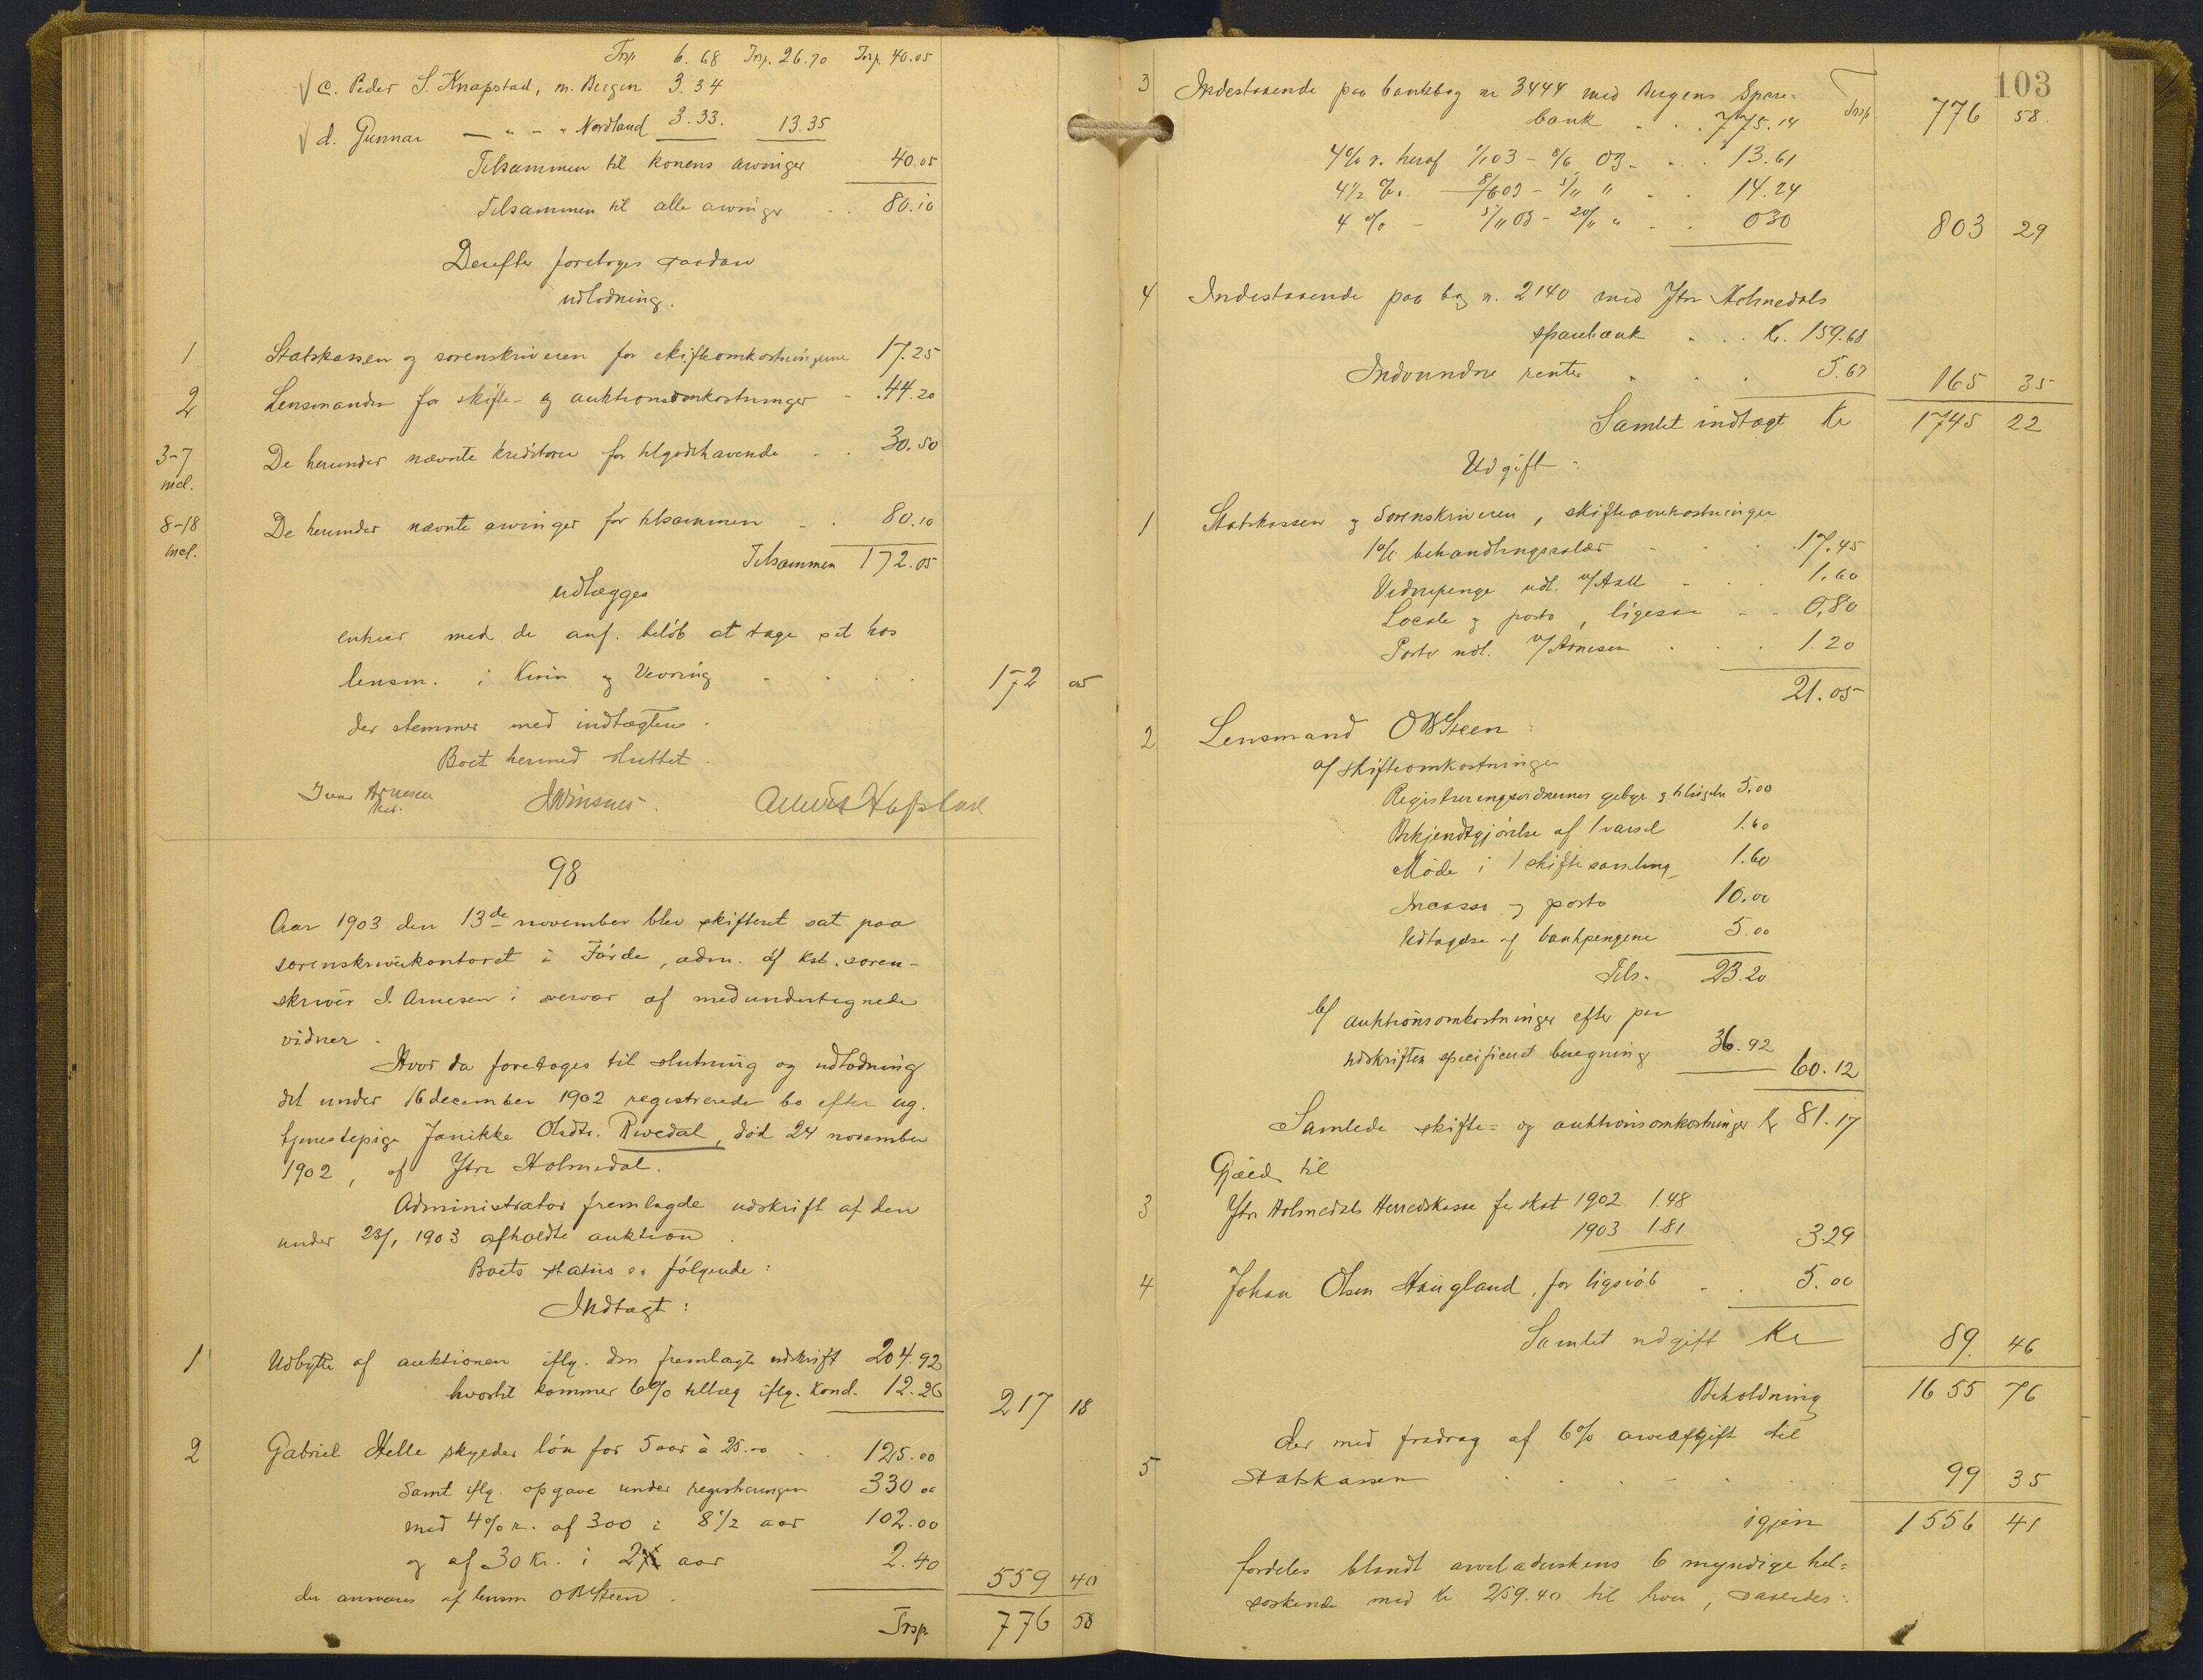 Trsp 6.68 Trsp. 26.70 Trsp. 40.05
√ c. Peder S. Knapstad, m. Bergen 3.34
√ d. Gunnar — " - " Nordland 3.33. 13.35
Tilsammen til konens arvinger 40.05
Tilsammen til alle arvinger . . 80.10
Derefter foretoges saadan
udlodning.
1 Statskassen og sorenskriveren for skifteomkostningerne 17.25
2 Lensmanden for skifte- og auktionsomkostninger - .44.20
3-7 incl. De herunder nævnte kreditorer for tilgodehavende . . 30.50
8-18 incl. De herunder nævnte arvinger for tilsammen - . 80.10
Tilsammen 172.05
udlægges
enhver med de anf. beløb at tage sit hos
lensm. i Kinn og Vevring . . . . 172 05
der stemmer med indtægten.
Boet hermed sluttet.
Arnesen
98
Aar 1903 den 13de november blev skifteret sat paa
sorenskriverkontoret i Førde, adm. af kst. soren-
skriver I. Arnesen i overvær af medundertegnede
vidner.
Hvor da foretoges til slutning og udlodning
det under 16 december 1902 registrerede bo efter ug.
tjenestepige Janikke Olsdtr. Rivedal, død 24 november
1902, af Ytre Holmedal.
Administrator fremlagde udskrift af den
under 23/1 1903 afholdte auktion.
Boets status er følgende:
Indtægt:
1 Udbytte af auktionen iflg. den fremlagte udskrift 204.92
hvortil kommer 6% tillæg iflg. kond. 12.26 217 18
2 Gabriel Helle skylder løn for 5 aar à 25.00 . . 125.00
samt iflg. opgave under registreringen 330 00
med 4% r. af 300 i 8 1/2 aar 102.00
og af 30 Kr. i 2 aar 2.40 559 40
der ansvares af lensm O B Steen.
Trsp. 776 58
103
Trsp. 776 58.
3 Indestaaende paa bankbog nr 3444 med Bergens Spare-
bank . . . 775.14
4% r. heraf 1/1 03 - 8/6 03 - . . 13.61
4 1/2 % r. — 8/6 03 - 5/11 " . . 14.24
4 % - 5/11 03 - 20/11 " . . 0 30 803 29
4 Indestaaende paa bog n. 2140 med Ytre Holmedals
sparebank . . Kr. 159.68
Indvundne renter . . . 5.67 165 35
Samlet indtægt Kr 1745 22
Udgift:
1 Statskassen og Sorenskriveren, skifteomkostninger
1% behandlingssalær . . . 17.45
Vidnepenge udl. v/Aall - . . 1.60
Locale og porto, ligesaa - . . 0.80
Porto udl. v/Arnesen . . . 1.20
21.05
2 Lensmand O B Steen:
a/ skifteomkostninger
Registreringsvidnernes gebyr og tilsigelse 5.00
Bekjendtgjørelse af 1 varsel 1.60
Møde i 1 skiftesamling 1.60
Incasso og porto 10.00
Udtagelse af bankpengene 5.00
Tils. 23.20
b/ Auktionsomkostninger efter paa
udskriften specificeret beregning 36.92 60.12
Samlede skifte= og auktionsomkostninger Kr 81.17
Gjæld til
3 Ytre Holmedals Herredskasse for skat 1902 1.48
1903 1.81 3.29
4 Johan Olsen Haugland, for ligsvøb - . 5.00
Samlet udgift Kr 89. 46
Beholdning 1655 76
der med fradrag af 6% arveafgift til
5 Statskassen . . . - . . 99 35
igjen 1556 41
fordeles blandt arveladerskens 6 myndige hel=
søskende med Kr 259.40 til hver, saaledes: